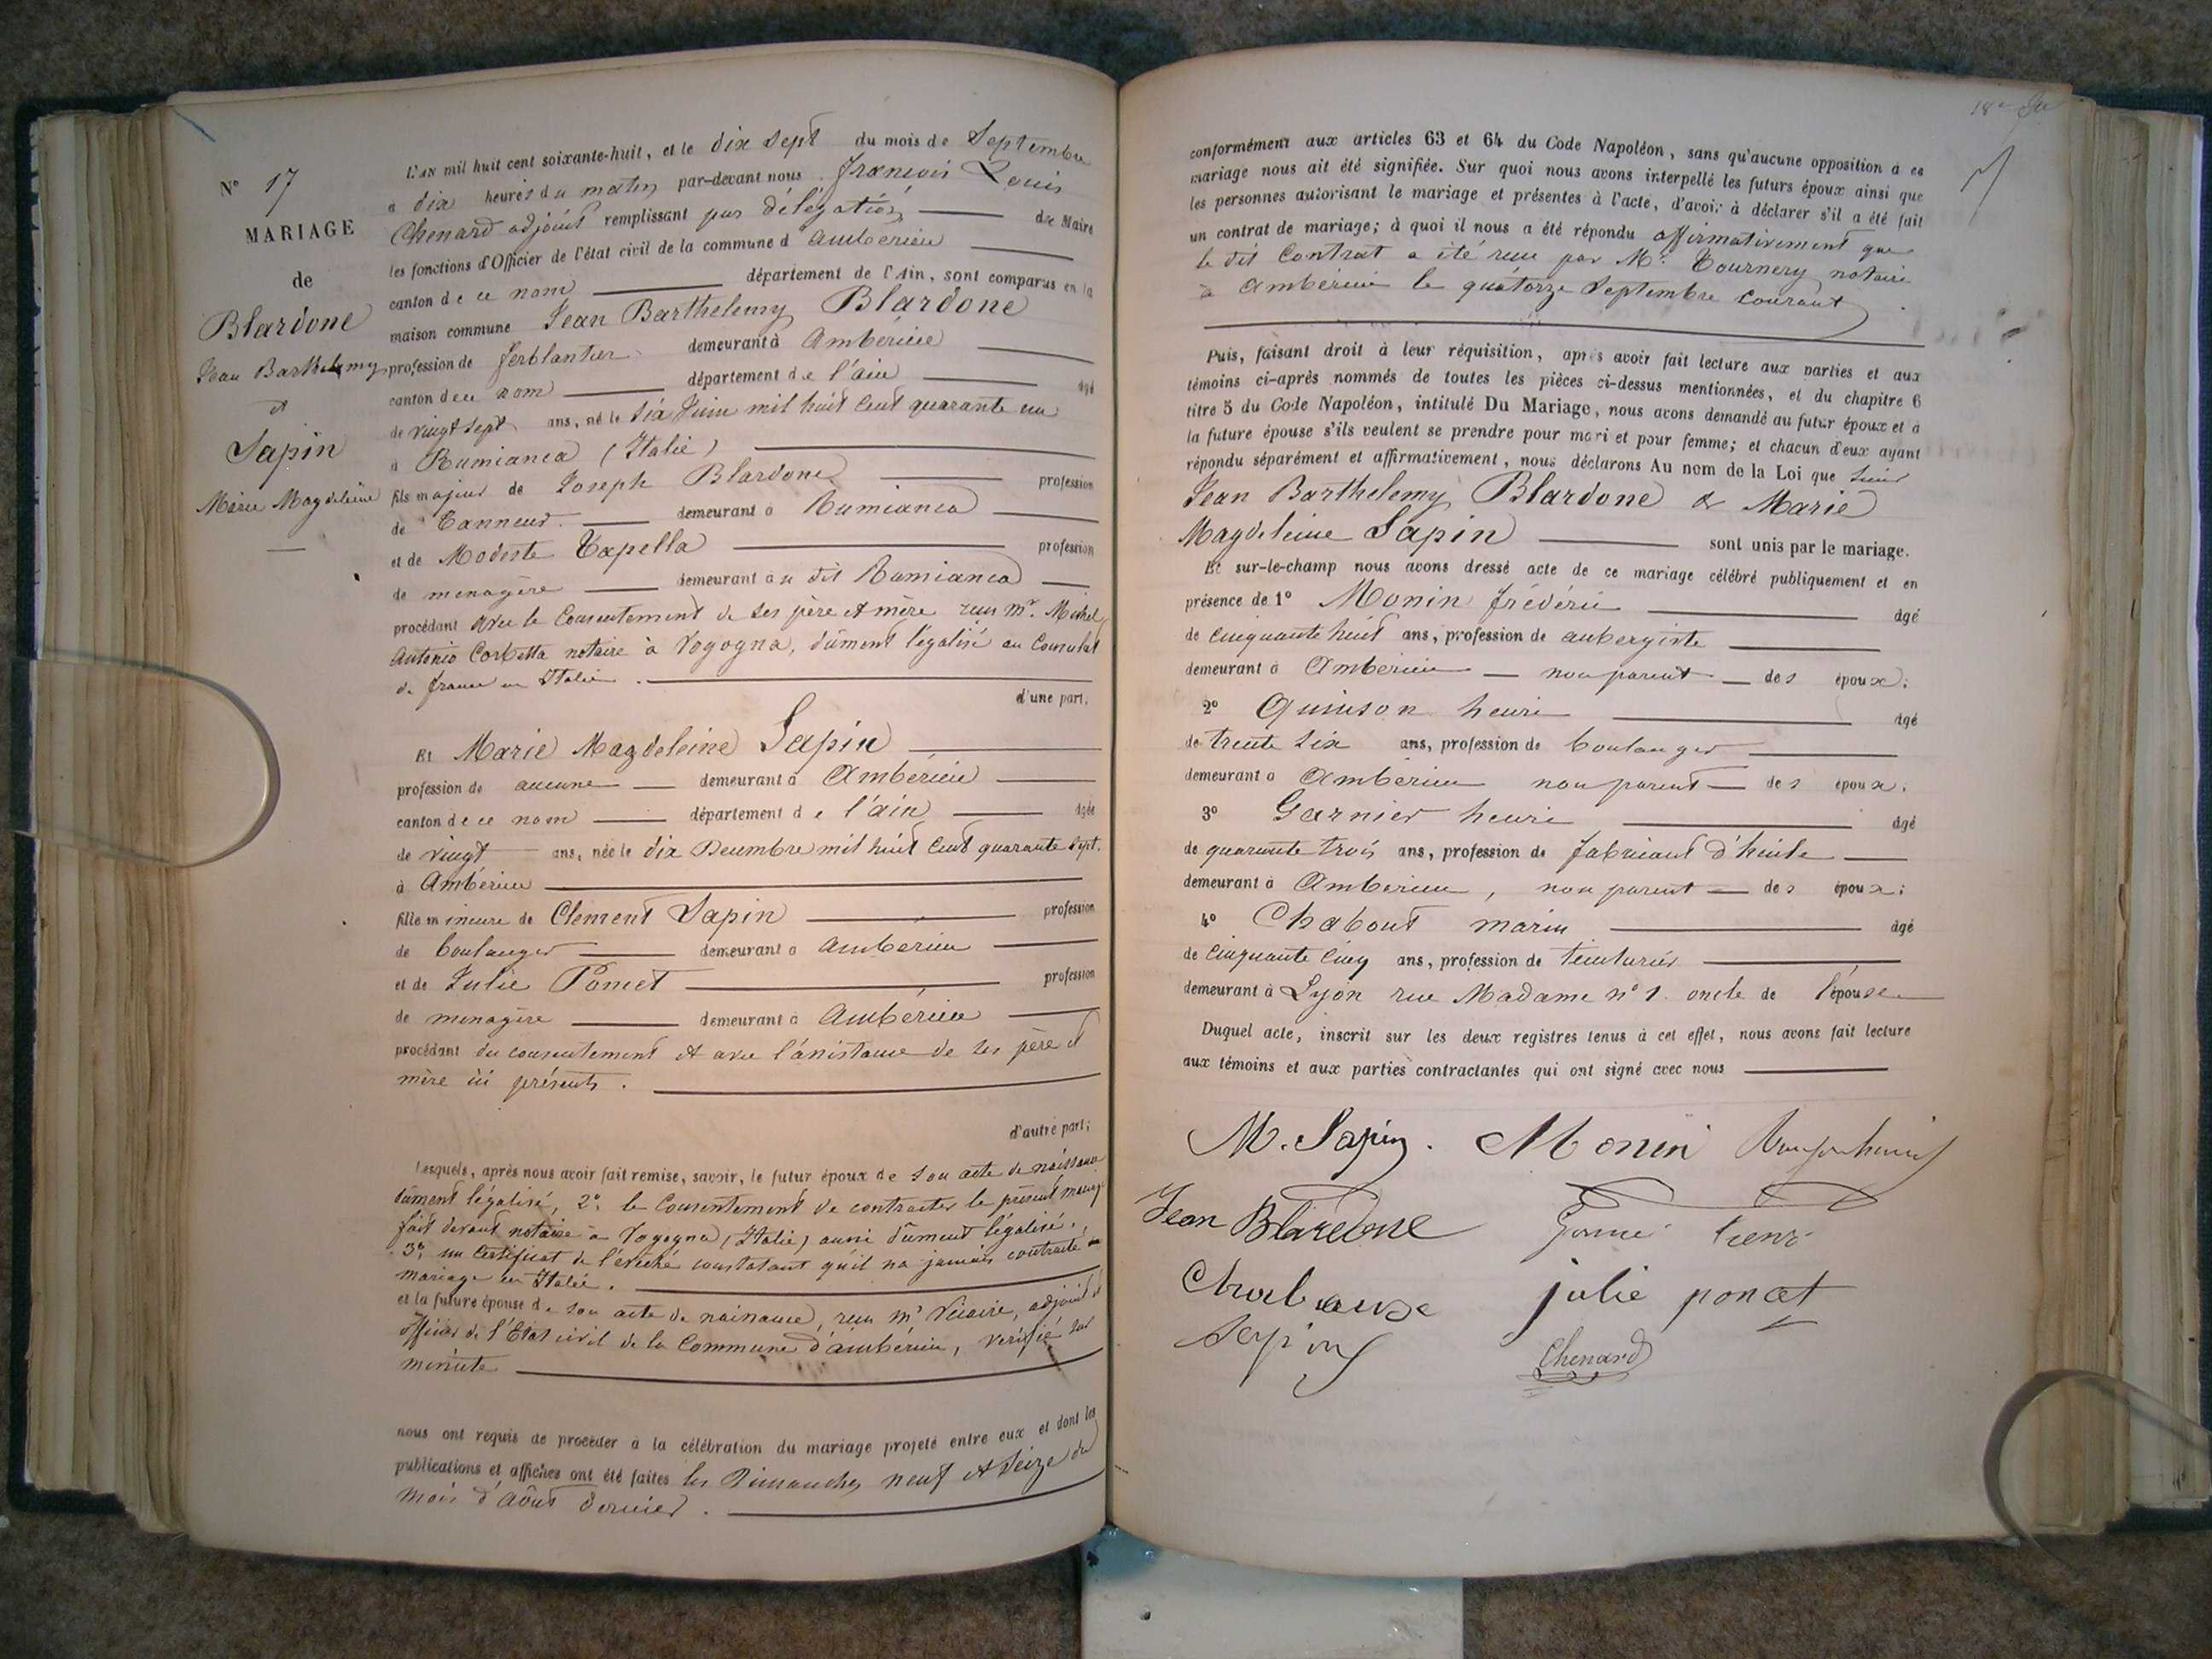 N° 17
MARIAGE
de
Blardone
Jean Barthelemy
et
Sapin
Marie Magdeleine
L'AN mil huit cent soixante-huit, et le dix sept du mois de Septembre
a dix heures du matin par-devant nous François Louis
Chenard adjoint remplissant par délégation de Maire
les fonctions d'Officier de l'état civil de la commune d'Ambérieu
canton de ce nom département de l'Ain, sont comparus en la
maison commune Jean Barthelemy Blardone
profession de ferblantier demeurant à Ambérieu
canton de ce nom département de l'ain âgé
de vingt sept ans, né le six Juin mil huit cent quarante un
à Rumianca (Italie)
fils majeur de Joseph Blardone profession
de Tanneur demeurant à Rumianca
et de Modeste Tapella profession
de menagère demeurant au dit Rumianca
procédant avec le Consentement de ses père et mère reçu Mr. Michel
Antonio Corbetta notaire à Vogogna, dûment légalisé au Consulat
de france en Italie.
d'une part.
Et Marie Magdeleine Sapin
profession de aucune demeurant à Ambérieu
canton de ce nom département de l'ain âgée
de vingt ans, née le dix Decembre mil huit cent quarante sept.
à Ambérieu
fille mineure de Clement Sapin profession
de boulanger demeurant à Ambérieu
et de Julie Poncet profession
de menagère demeurant à Ambérieu
procédant du consentement et avec l'assistance de ses père et
mère ici présents.
d'autre part;
Lesquels, après nous avoir fait remise, savoir, le futur époux de son acte de naissance
dûment légalisé, 2° le Consentement de contracter le présent mariage
fait devant notaire à Vogogna (Italie) aussi dûment légalisé,
3° un Certificat de l'évêché constatant qu'il na jamais contracté
mariage en Italie.
et la future épouse de son acte de naissance, reçu Mr Vicaire, adjoint et
officier de l'Etat civil de la Commune d'ambérieu, verifié sur
minute
nous ont requis de procéder à la célébration du mariage projeté entre eux et dont les
publications et affiches ont été faites les Dimanches neuf et seize du
mois d'Août dernier.
conformément aux articles 63 et 64 du Code Napoléon, sans qu'aucune opposition à ce
mariage nous ait été signifiée. Sur quoi nous avons interpellé les futurs époux ainsi que
les personnes autorisant le mariage et présentes à l'acte, d'avoir à déclarer s'il a été fait
un contrat de mariage; à quoi il nous a été répondu affirmativement que
le dit Contrat a été reçu par Mr. Tournery notaire
à Ambérieu le quatorze Septembre courant
Puis, faisant droit à leur réquisition, après avoir fait lecture aux parties et aux
témoins ci-après nommés de toutes les pièces ci-dessus mentionnées, et du chapitre 6
titre 5 du Code Napoléon, intitulé Du Mariage, nous avons demandé au futur époux et à
la future épouse s'ils veulent se prendre pour mari et pour femme; et chacun d'eux ayant
répondu séparément et affirmativement, nous déclarons Au nom de la Loi que Sieur
Jean Barthelemy Blardone & Marie
Magdeleine Sapin sont unis par le mariage.
Et sur-le-champ nous avons dressé acte de ce mariage célébré publiquement et en
présence de 1° Monin frédéric âgé
de cinquante huit ans, profession de aubergiste
demeurant à Ambérieu non parent des époux;
2° Quinson henri âgé
de trente six ans, profession de boulanger
demeurant à Ambérieu non parent des époux;
3° Garnier henri âgé
de quarante trois ans, profession de fabricant d'huile
demeurant à Ambérieu, non parent des époux;
4° Chabout marin âgé
de cinquante cinq ans, profession de teinturier
demeurant à Lyon rue Madame n° 1. oncle de l'épouse
Duquel acte, inscrit sur les deux registres tenus à cet effet, nous avons fait lecture
aux témoins et aux parties contractantes qui ont signé avec nous
M. Sapin. Monin
Jean Blardone
julie poncet
Sapin
Chenard